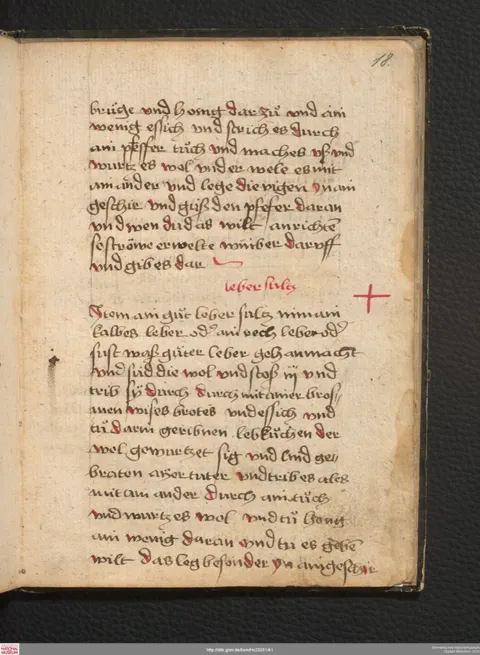 18.
brüge vnd honig dar zů vnd ain
wenig essich vnd strich es durch
ain pfeffer tůch vnd mach es vß vnd
wurtz es wol vnder wele es mit
ain ander vnd lege die vigen yn ain
geschir vnd güß den pfefer daran
vnd wen du das wilt anrichtē
se ströwe erwelte winber daruff
vnd gib es dar
leber sultz
Item ain gůt leber sultz nim ain
kalbes leber od' ain rech leber od'
sust waß gůter leber geh an macht
vnd süd die wol vnd stoß iij vnd
trib sÿ durch durch mit ainer bros-
men wises brotes vnd essich vnd
tů darin geribnen lebkůchen der
wol gewurtzet sig vnd lind ge-
braten aÿer tuter vnd trib es ales
mit ain ander durch ain tůch
vnd wurtz es wol vnd tů hong
ain wenig daran vnd tu es gebē
wilt das leg besonder yn ain geschir